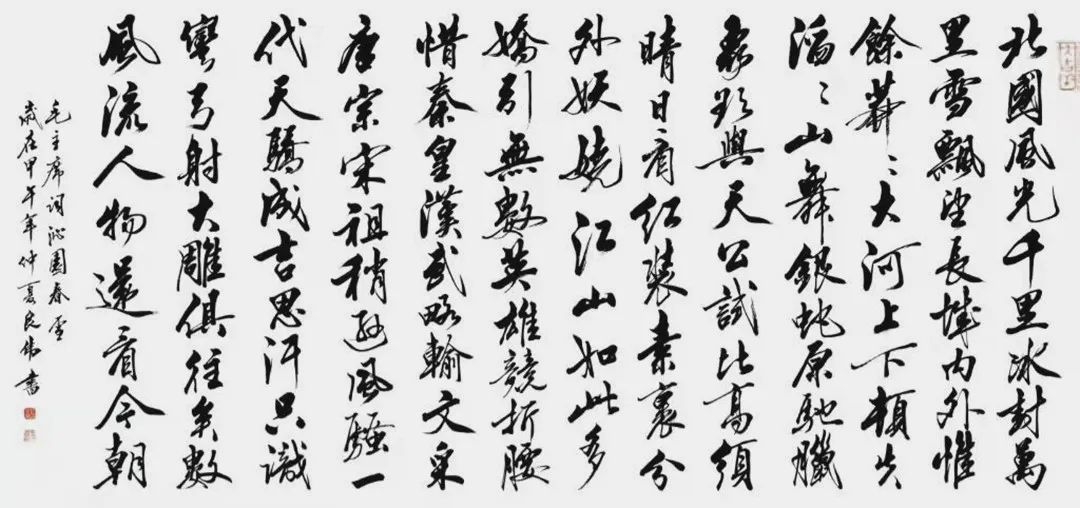 北國風光千里冰封萬
里雪飄望長城内外惟
餘莽〻大河上下頓失
滔〻山舞銀蛇原馳臘
象欲與天公試比高須
晴日看红裝素裹分
外妖嬈江山如此多
嬌引無數英雄競折腰
惜秦皇漢武略輸文采
唐宗宋祖稍遜風騷一
代天驕成吉思汗只識
彎弓射大雕俱往矣數
風流人物還看今朝
毛主席詞沁園春雪
歲在甲午年仲夏民偉書